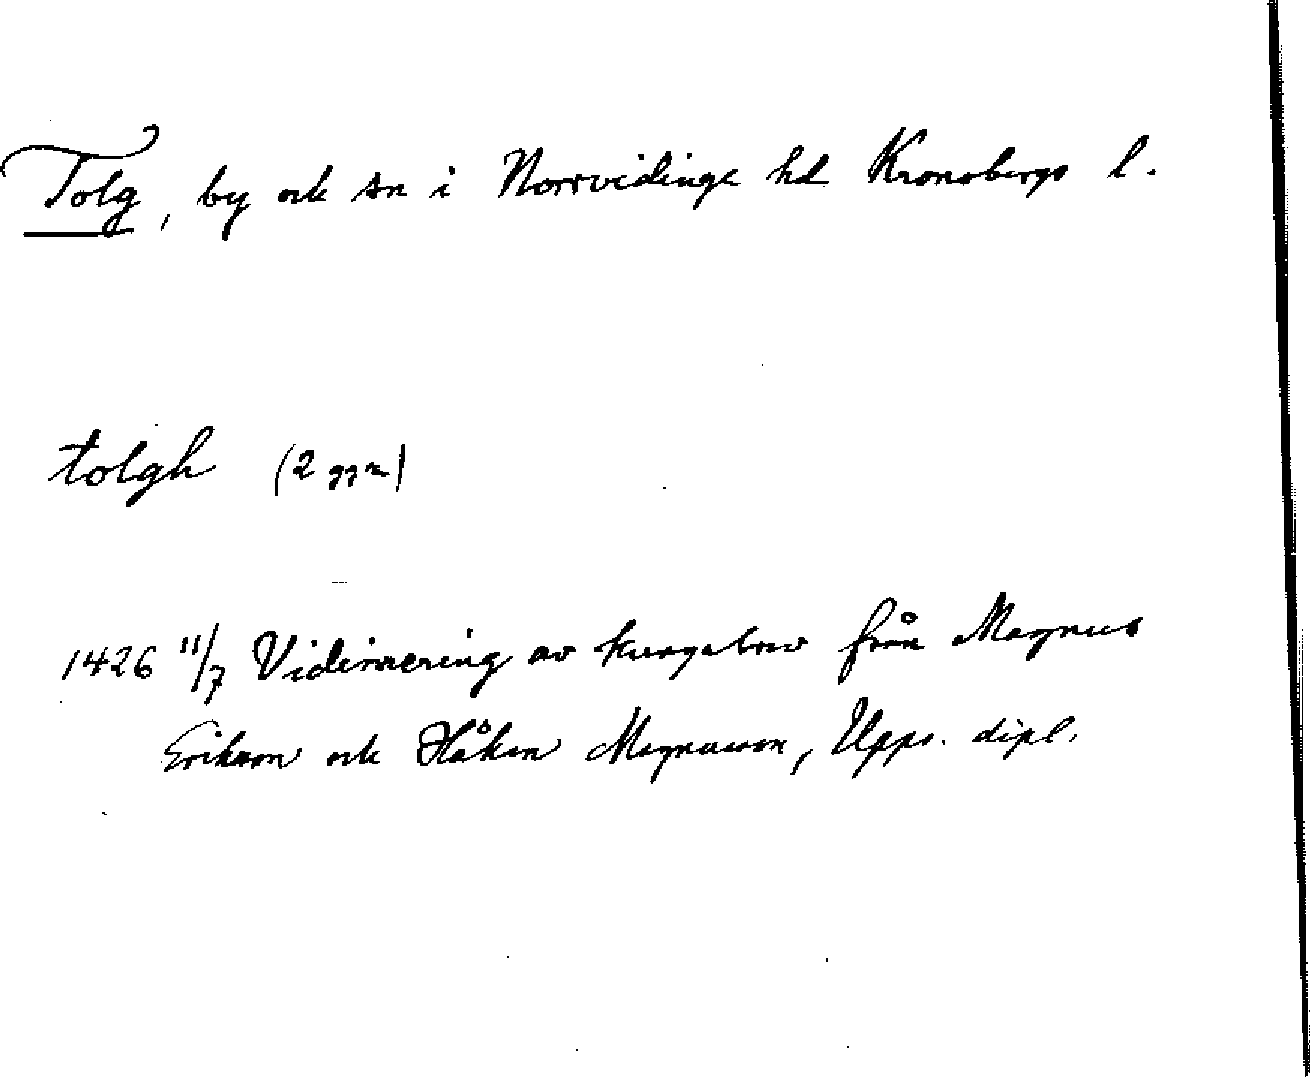 Tolg, by ock sn i Norrvidinge hd Kronobergs l.
tolgh (2 ggr)
1426 11/7 Vidimering av kungabrev från Magnus
Erikson ock Håkan Magnusson, Upps. dipl.